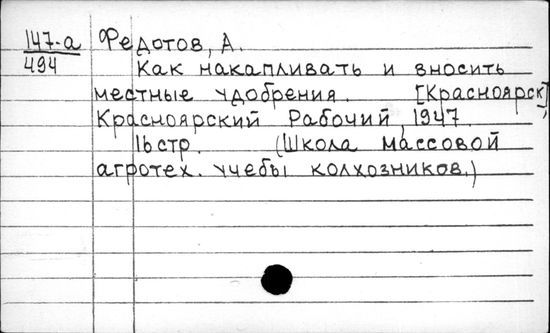 147-а
494
Федотов, А.
Как накапливать и вносить
местные удобрения. [Красноярск],
Красноярский Рабочий, 1947.
16 стр. (Школа массовой
агротех. учебы колхозников.)